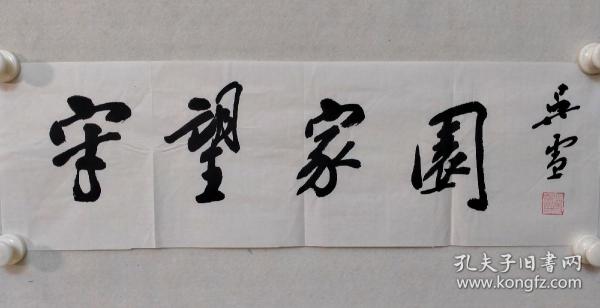 守望家園
吴雪
孔夫子旧書网
www.kongfz.com